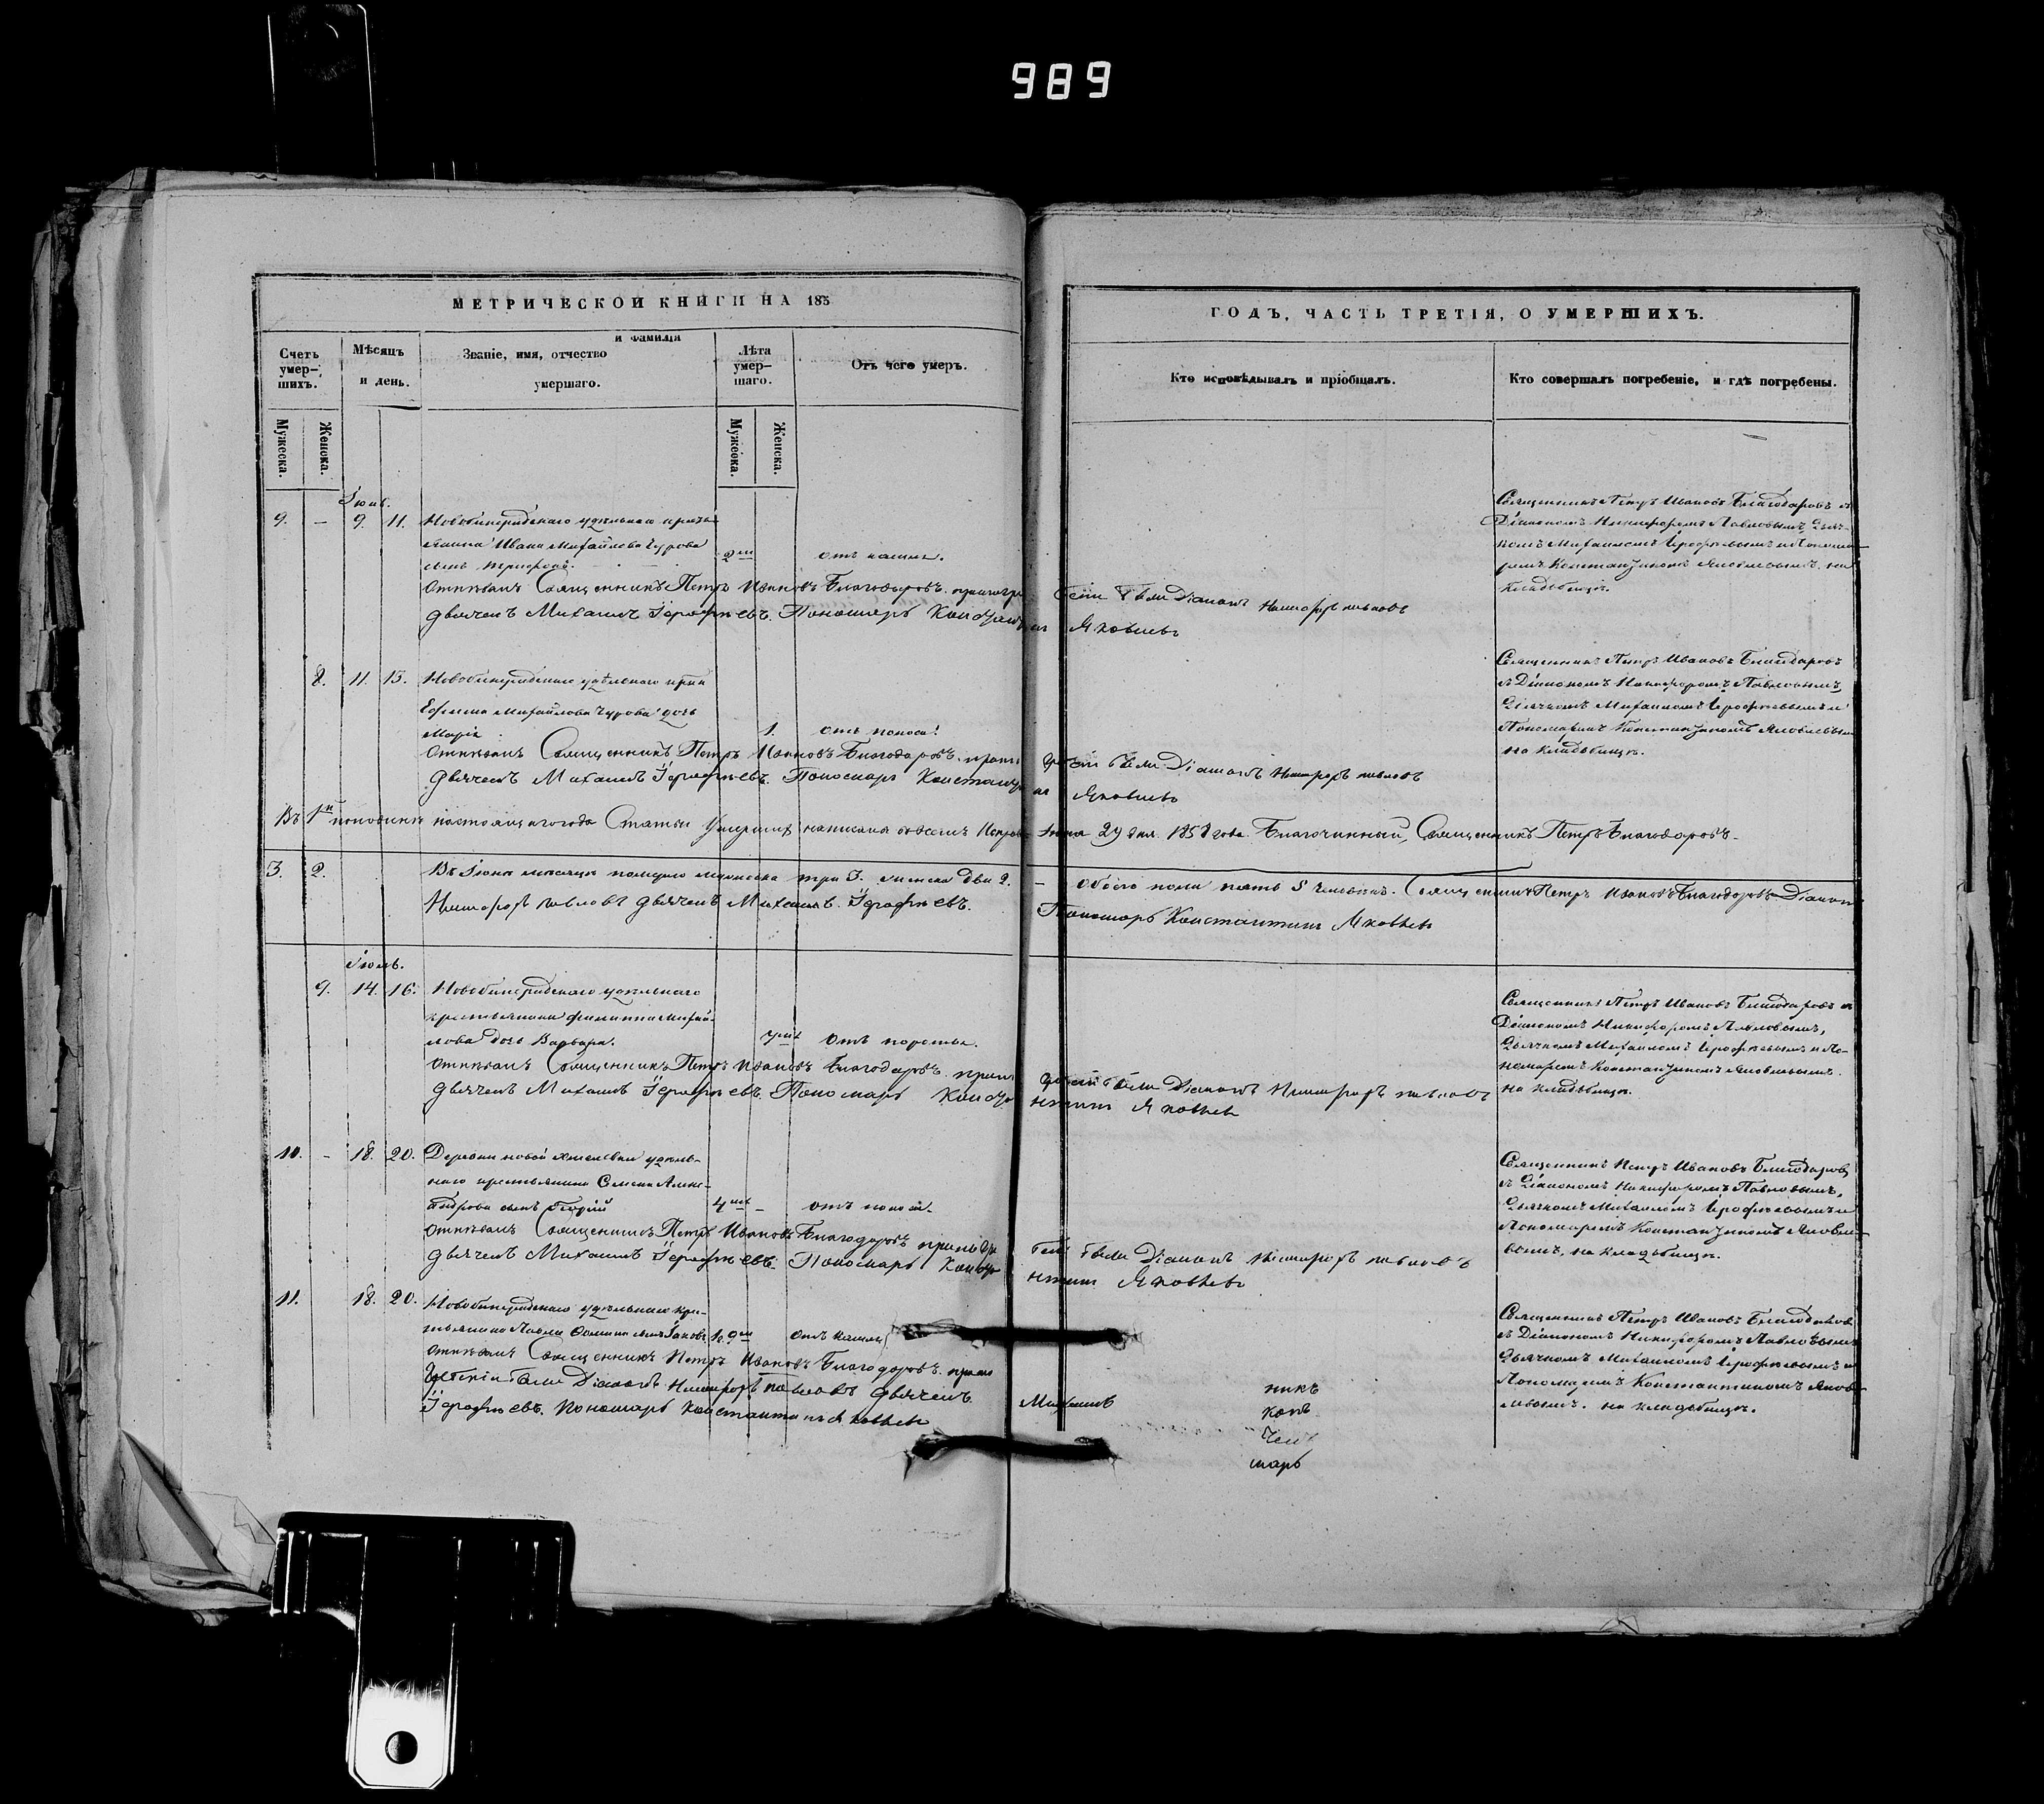 989
МЕТРИЧЕСКОЙ КНИГИ НА 185
ГОДЪ, ЧАСТЬ ТРЕТІЯ, О УМЕРШИХЪ.
Счетъ умер-шихъ.
Мѣсяцъ и день.
Званіе, имя, отчество и фамилія умершаго.
Лѣта умер-шаго.
Отъ чего умеръ.
Кто исповѣдывалъ и пріобщалъ.
Кто совершалъ погребеніе, и гдѣ погребены.
Мужеска.
Женска.
Мужеска.
Женска.
Іюнь.
9. - 9. 11. удѣльнаго
Ивана Михайлова Чурова
сынъ
отъ кашля.
Священникъ Петръ Ивановъ Благодаровъ съ
Діакономъ Никифоромъ Павловымъ, Дьяч-
комъ Михаиломъ Ерофѣевымъ и Понома-
ремъ Константиномъ Яковлевымъ на
кладбищѣ.
Отпѣвалъ Священникъ Петръ Ивановъ Благодаровъ. при погре беніи были Діаконъ Никифоръ Павловъ
Дьячекъ Михаилъ Іерофѣевъ. Пономарь Константинъ Яковлевъ
8. 11. 13. удѣльнаго
Михайлова Чурова дочь
Марія 1. отъ поноса.
Священникъ Петръ Ивановъ Благодаровъ
съ Діакономъ Никифоромъ Павловымъ,
Дьячкомъ Михаиломъ Ерофѣевымъ и
Пономаремъ Константиномъ Яковлевымъ
на кладбищѣ.
Отпѣвалъ Священникъ Петръ Ивановъ Благодаровъ. при погребеніи были Діаконъ Никифоръ Павловъ
Дьячекъ Михаилъ Іерофѣевъ. Пономарь Константинъ Яковлевъ
Въ 1й половинѣ настоящаго года Статьи Умершихъ написаны 29 дня 1858 года. Благочинный, Священникъ Петръ Благодаровъ.
3. 2. Въ Іюнѣ мѣсяцѣ померло мужеска три 3. женска две 2. - обоего пола пять 5 человѣкъ. Священникъ Петръ Ивановъ Благодаровъ Діаконъ
Никифоръ Павловъ Дьячекъ Михаилъ Іерофѣевъ. Пономарь Константинъ Яковлевъ
Іюль.
9. 14. 16. удѣльнаго
крестьянина Филиппа Михай-
лова дочь Варвара.
Священникъ Петръ Ивановъ Благодаровъ съ
Діакономъ Никифоромъ Павловымъ,
Дьячкомъ Михаиломъ Ерофѣевымъ и По-
номаремъ Константиномъ Яковлевымъ
на кладбищѣ.
Отпѣвалъ Священникъ Петръ Ивановъ Благодаровъ. при погребеніи были Діаконъ Никифоръ Павловъ
Дьячекъ Михаилъ Іерофѣевъ. Пономарь Константинъ Яковлевъ
10. - 18. 20. Деревни новой удѣль-
наго крестьянина Семена Алекс-
андрова сынъ Георгій
Священникъ Петръ Ивановъ Благодаровъ
съ Діакономъ Никифоромъ Павловымъ,
Дьячкомъ Михаиломъ Ерофѣевымъ и
Пономаремъ Константиномъ Яковле-
вымъ, на кладбищѣ.
Отпѣвалъ Священникъ Петръ Ивановъ Благодаровъ при погре беніи были Діаконъ Никифоръ Павловъ
Дьячекъ Михаилъ Іерофѣевъ. Пономарь Константинъ Яковлевъ
11. 18. 20. удѣльнаго кре-
стьянина Павла сынъ Іаковъ отъ кашля
Священникъ Петръ Ивановъ Благодаровъ
съ Діакономъ Никифоромъ Павловымъ
Дьячкомъ Михаиломъ Ерофѣевымъ и
Пономаремъ Константиномъ Яков-
левымъ. на кладбищѣ.
Отпѣвалъ Священникъ Петръ Ивановъ Благодаровъ. при по
гребеніи были Діаконъ Никифоръ Павловъ Дьячекъ Михаилъ
Іерофѣевъ. Пономарь Константинъ Яковлевъ
никъ
конъ
чекъ
марь